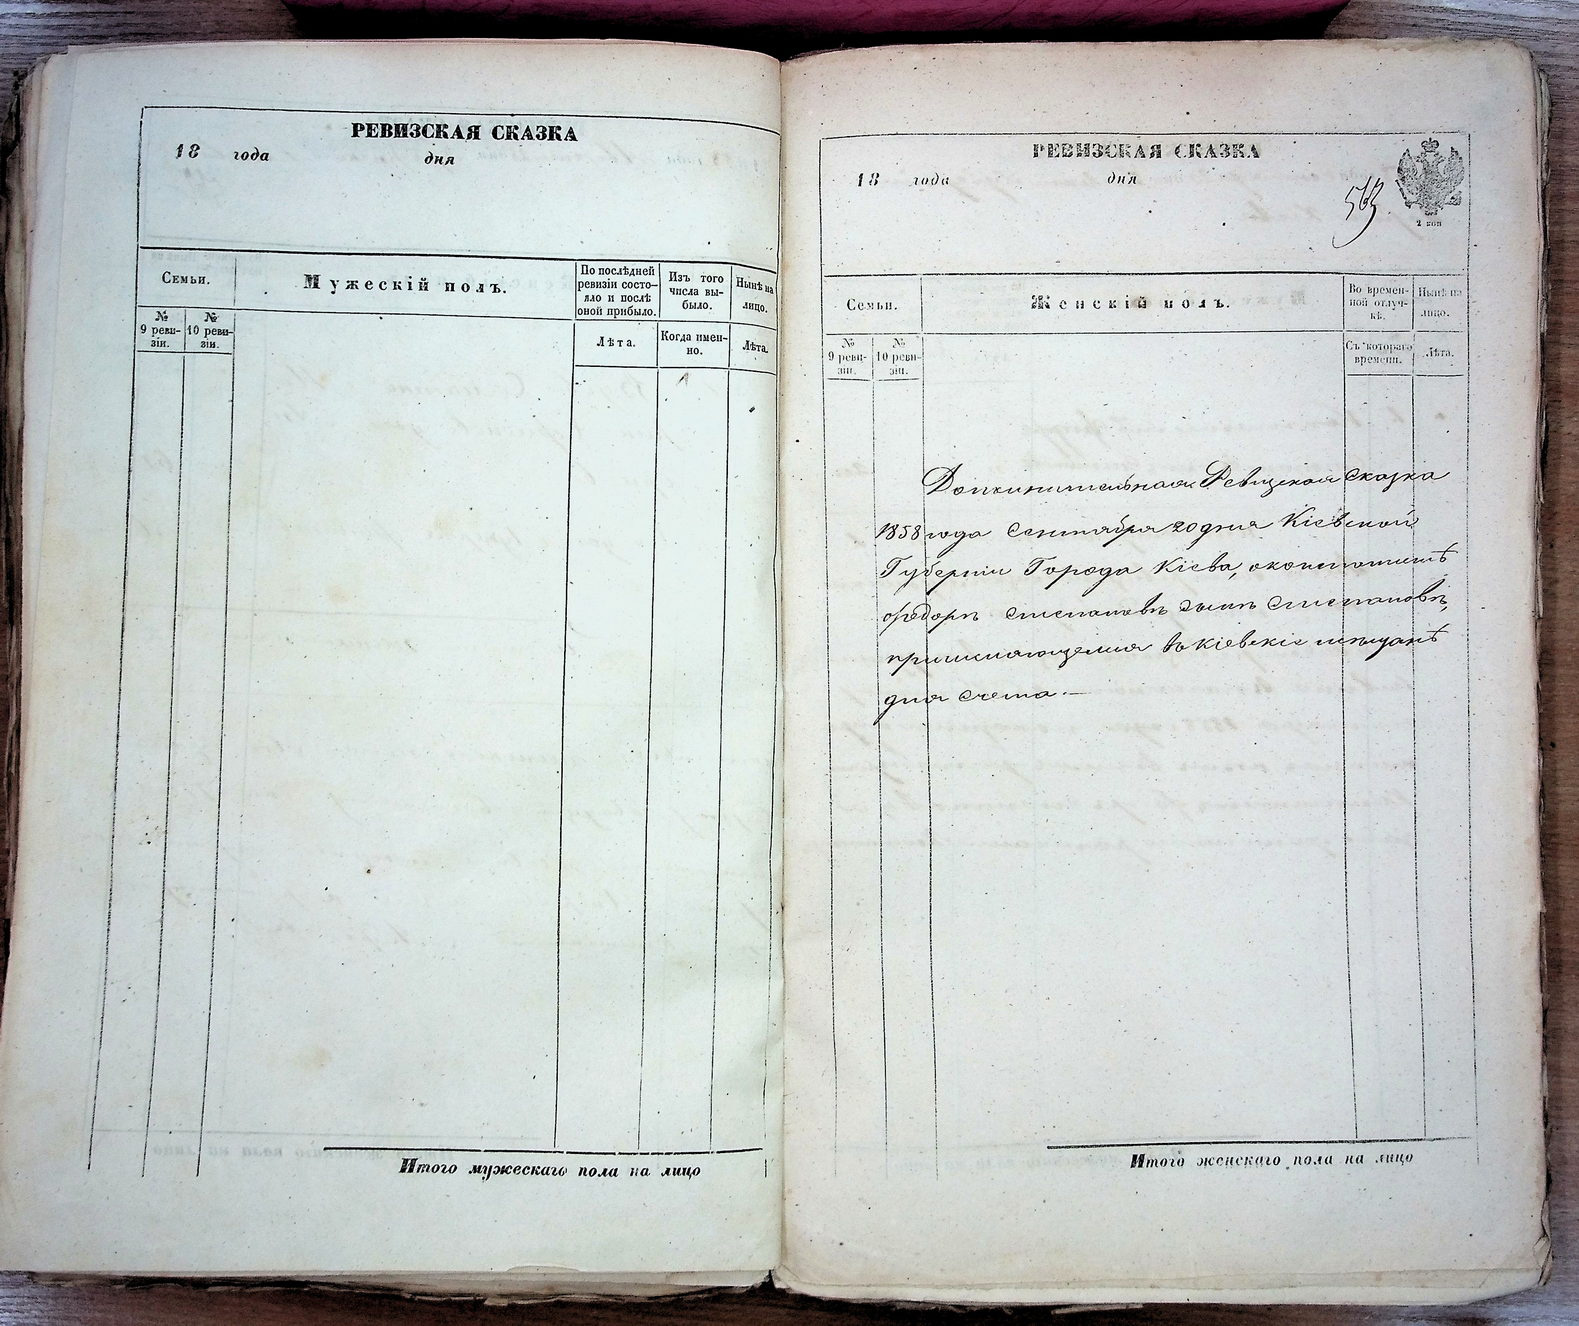 РЕВИЗСКАЯ СКАЗКА
18 года дня
Семьи.
Мужескій полъ.
По послѣдней ревизіи состо-
яло и послѣ оной прибыло.
Изъ того числа вы-
было.
Нынѣ на лицо.
№ 9 реви-
зіи.
№ 10 реви-
зіи.
Лѣта.
Когда имен-
но.
Лѣта.
Итого мужескаго пола на лицо
РЕВИЗСКАЯ СКАЗКА
18 года дня
563
2 коп
Семьи.
Женскій полъ.
Во времен-
ной отлуч-
кѣ.
Нынѣ на лицо.
№ 9 реви-
зіи.
№ 10 реви-
зіи.
Съ котораго времени.
Лѣта.
Дополнительная Ревизская сказка
1858 года Сентября 20 дня Кіевской
Губерніи Города Кіева, о
Федоръ Степановъ сынъ Степановъ,
въ Кіевскіе мѣщанѣ
для счета.—
Итого женскаго пола на лицо